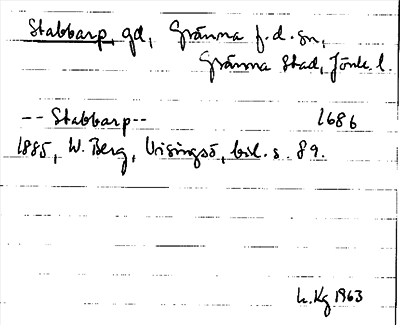 Stabbarp, gd, Gränna f.d. sn,
Gränna Stad, Jönk. l.
-- Stabbarp -- 1686
1885, W. Berg, Visingsö, bil. s. 89.
L. Kg 1963